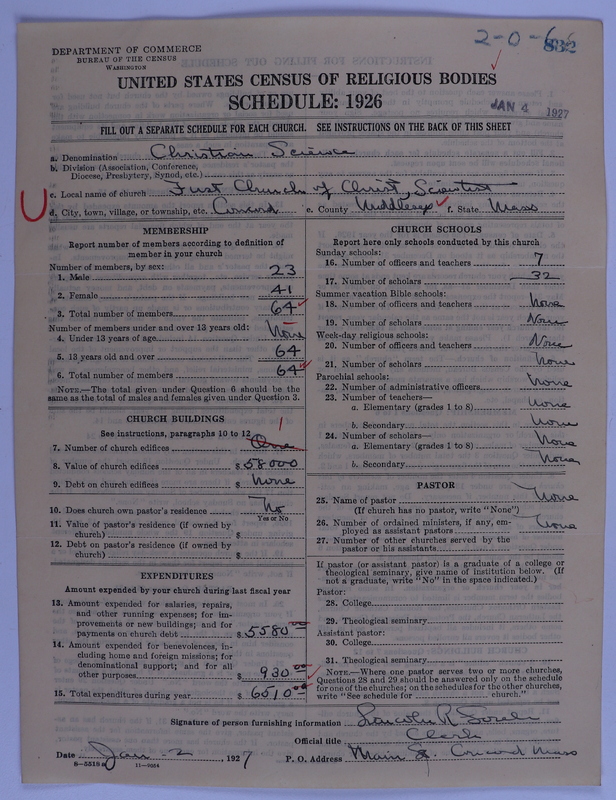 2-0-6
8832
DEPARTMENT OF COMMERCE
BUREAU OF THE CENSUS
WASHINGTON
UNITED STATES CENSUS OF RELIGIOUS BODIES
SCHEDULE: 1926
JAN 4 1927
FILL OUT A SEPARATE SCHEDULE FOR EACH CHURCH. SEE INSTRUCTIONS ON THE BACK OF THIS SHEET
a. Denomination Christian Science
b. Division (Association, Conference, Diocese, Presbytery, Synod, etc.)
c. Local name of church First Church of Christ, Scientist
d. City, town, village, or township, etc. Concord e. County Middlesex f. State Mass
MEMBERSHIP
Report number of members according to definition of
member in your church
Number of members by sex:
1. Male 23
2. Female 41
3. Total number of members 64
Number of members under and over 13 years old:
4. Under 13 years of age None
5. 13 years old and over 64
6. Total number of members 64
NOTE.—The total given under Question 6 should be the
same as the total of males and females given under Question 3.
CHURCH BUILDINGS
See instructions, paragraphs 10 to 12
7. Number of church edifices One 1
8. Value of church edifices $ 58000
9. Debt on church edifices $ None
10. Does church own pastor's residence No
Yes or No
11. Value of pastor's residence (if owned by
church) $
12. Debt on pastor's residence (if owned by
church) $
EXPENDITURES
Amount expended by your church during last fiscal year
13. Amount expended for salaries, repairs,
and other running expenses; for im-
provements or new buildings; and for
payments on church debt $ 5580.00
14. Amount expended for benevolences, in-
cluding home and foreign missions; for
denominational support; and for all
other purposes $ 930.00
15. Total expenditures during year $ 6510.00
CHURCH SCHOOLS
Report here only schools conducted by this church
Sunday schools:
16. Number of officers and teachers 7
17. Number of scholars 32
Summer vacation Bible schools:
18. Number of officers and teachers None
19. Number of scholars None
Week-day religious schools:
20. Number of officers and teachers None
21. Number of scholars None
Parochial schools:
22. Number of administrative officers None
23. Number of teachers—
a. Elementary (grades 1 to 8) None
b. Secondary None
24. Number of scholars—
a. Elementary (grades 1 to 8) None
b. Secondary None
PASTOR
25. Name of pastor None
(If church has no pastor, write "None")
26. Number of ordained ministers, if any, em-
ployed as assistant pastors None
27. Number of other churches served by the
pastor or his assistants
If pastor (or assistant pastor) is a graduate of a college or
theological seminary, give name of institution below. (If
not a graduate, write "No" in the space indicated.)
Pastor:
28. College
29. Theological seminary
Assistant pastor:
30. College
31. Theological seminary
NOTE.—Where one pastor serves two or more churches,
Questions 28 and 29 should be answered only on the schedule
for one of the churches; on the schedules for the other churches,
write "See schedule for church."
Signature of person furnishing information Lincoln R.
Official title Clerk
Date Jan - 2, 1927 P. O. Address Main St. Concord Mass
8—5518a 11—7054